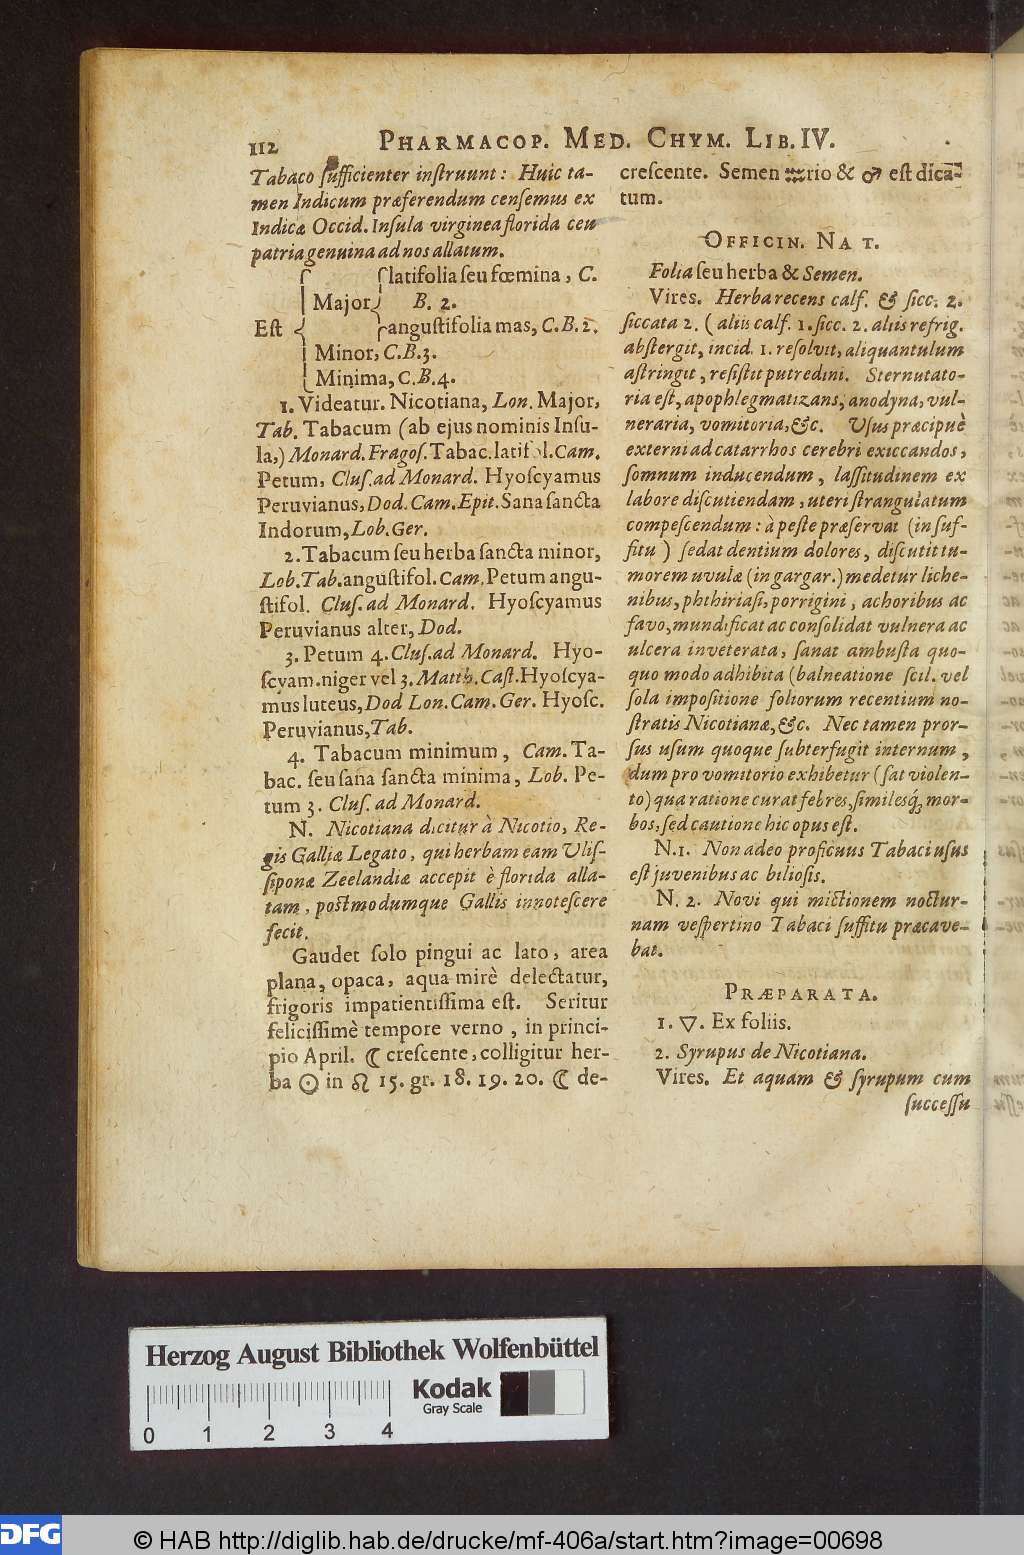 112 PHARMACOP. MED. CHYM. LIB. IV.
Tabaco ſufficienter inſtruunt: Huic ta-
men Indicum præferendum cenſemus ex
Indicæ Occid. Inſula virginea florida ceu
patria genuina ad nos allatum.
latifolia ſeu fœmina, C.
Major B. 2.
Eſt anguſtifolia mas, C.B.2.
Minor, C.B.3.
Minima, C.B.4.
1. Videatur. Nicotiana, Lon. Major,
Tab. Tabacum (ab ejus nominis Inſu-
la,) Monard. Fragoſ. Tabac. latifol. Cam.
Petum, Cluſ. ad Monard. Hyoſcyamus
Peruvianus, Dod. Cam. Epit. Sana ſancta
Indorum, Lob. Ger.
2. Tabacum ſeu herba ſancta minor,
Lob. Tab. anguſtifol. Cam. Petum angu-
ſtifol. Cluſ. ad Monard. Hyoſcyamus
Peruvianus alter, Dod.
3. Petum 4. Cluſ. ad Monard. Hyo-
ſcyam. niger vel 3. Matth. Caſt. Hyoſcya-
mus luteus, Dod Lon. Cam. Ger. Hyoſc.
Peruvianus, Tab.
4. Tabacum minimum, Cam. Ta-
bac. ſeu sana ſancta minima, Lob. Pe-
tum 3. Cluſ. ad Monard.
N. Nicotiana dicitur à Nicotio, Re-
gis Galliæ Legato, qui herbam eam Uliſ-
ſiponæ Zeelandiæ accepit è florida alla-
tam, poſtmodumque Gallis innoteſcere
fecit.
Gaudet ſolo pingui ac lato, area
plana, opaca, aqua mirè delectatur,
frigoris impatientiſſima eſt. Seritur
feliciſſimè tempore verno, in princi-
pio April. ☾ creſcente, colligitur her-
ba ☉ in ♌ 15. gr. 18. 19. 20. ☾ de-
creſcente. Semen ♒rio & ♂ eſt dica-
tum.
OFFICIN. NAT.
Folia ſeu herba & Semen.
Vires. Herba recens calf. & ſicc. 2.
ſiccata 2. (aliis calf. 1. ſicc. 2. aliis refrig.
abſtergit, incid. 1. reſolvit, aliquantulum
aſtringit, reſiſtit putredini. Sternutato-
ria eſt, apophlegmatizans, anodyna, vul-
neraria, vomitoria, &c. Uſus præcipuè
externi ad catarrhos cerebri exiccandos,
ſomnum inducendum, laſſitudinem ex
labore diſcutiendam, uteri ſtrangulatum
compeſcendum: à peſte præſervat (in ſuf-
fitu) ſedat dentium dolores, diſcutit tu-
morem uvulæ (in gargar.) medetur liche-
nibus, phthiriaſi, porrigini, achoribus ac
favo, mundificat ac conſolidat vulnera ac
ulcera inveterata, ſanat ambuſta quo-
quo modo adhibita (balneatione ſcil. vel
ſola impoſitione foliorum recentium no-
ſtratis Nicotianæ, &c. Nec tamen pror-
ſus uſum quoque ſubterfugit internum,
dum pro vomitorio exhibetur (ſat violen-
to) qua ratione curat febres, ſimilesq́; mor-
bos, ſed cautione hic opus eſt.
N.1. Non adeo proficuus Tabaci uſus
eſt juvenibus ac bilioſis.
N. 2. Novi qui mictionem noctur-
nam veſpertino Tabaci ſuffitu præcave-
bat.
PRÆPARATA.
1. ▽. Ex foliis.
2. Syrupus de Nicotiana.
Vires. Et aquam & ſyrupum cum
ſucceſſu
Herzog August Bibliothek Wolfenbüttel
Kodak
Gray Scale
0 1 2 3 4
DFG
© HAB http://diglib.hab.de/drucke/mf-406a/start.htm?image=00698